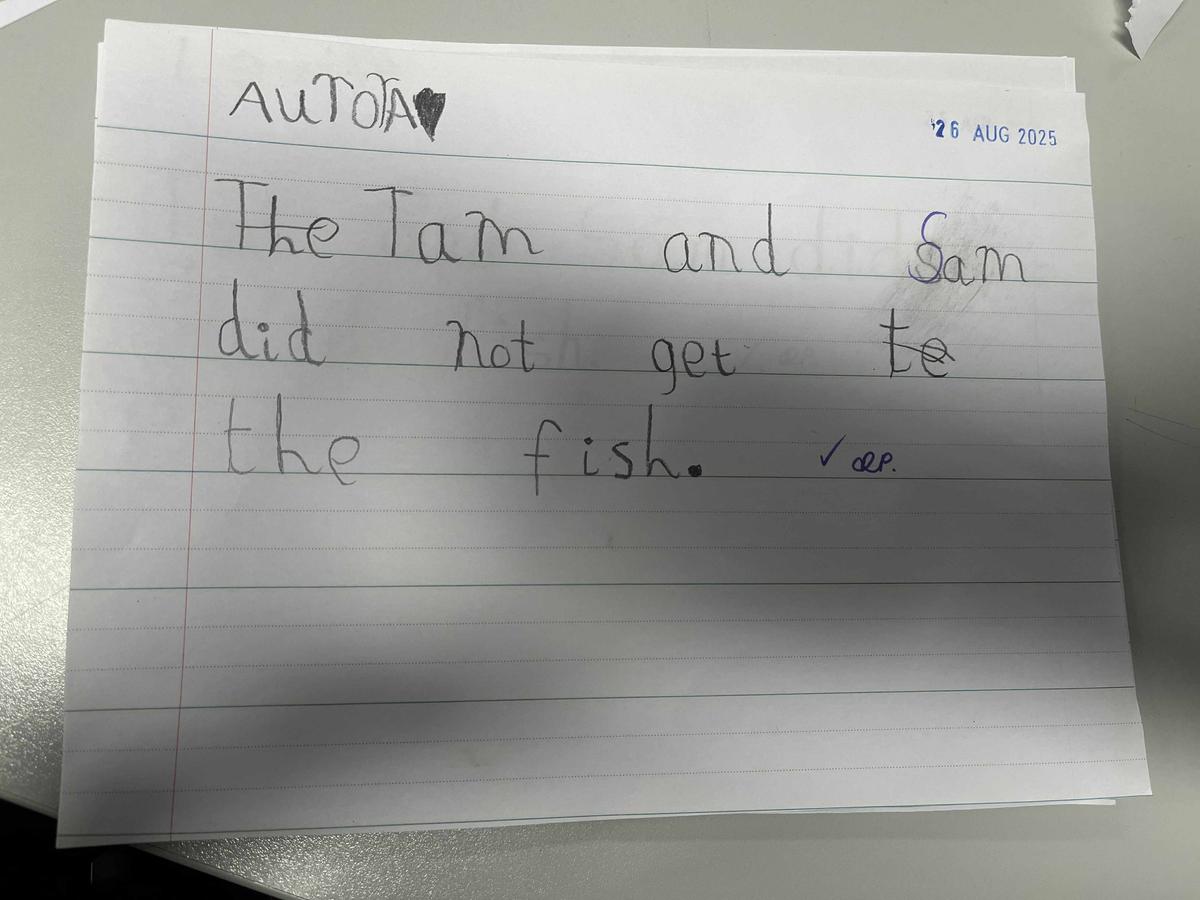 AUTOTA♥
'26 AUG 2025
The Tam and Sam
did not get te
the fish. ✓